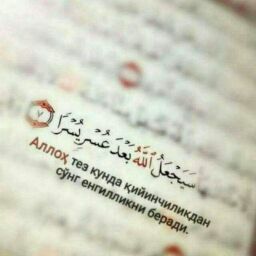 سَيَجْعَلُ ٱللَّهُ بَعْدَ عُسْرٍ يُسْرًا ٧
Аллоҳ тез кунда қийинчиликдан
сўнг енгилликни беради.